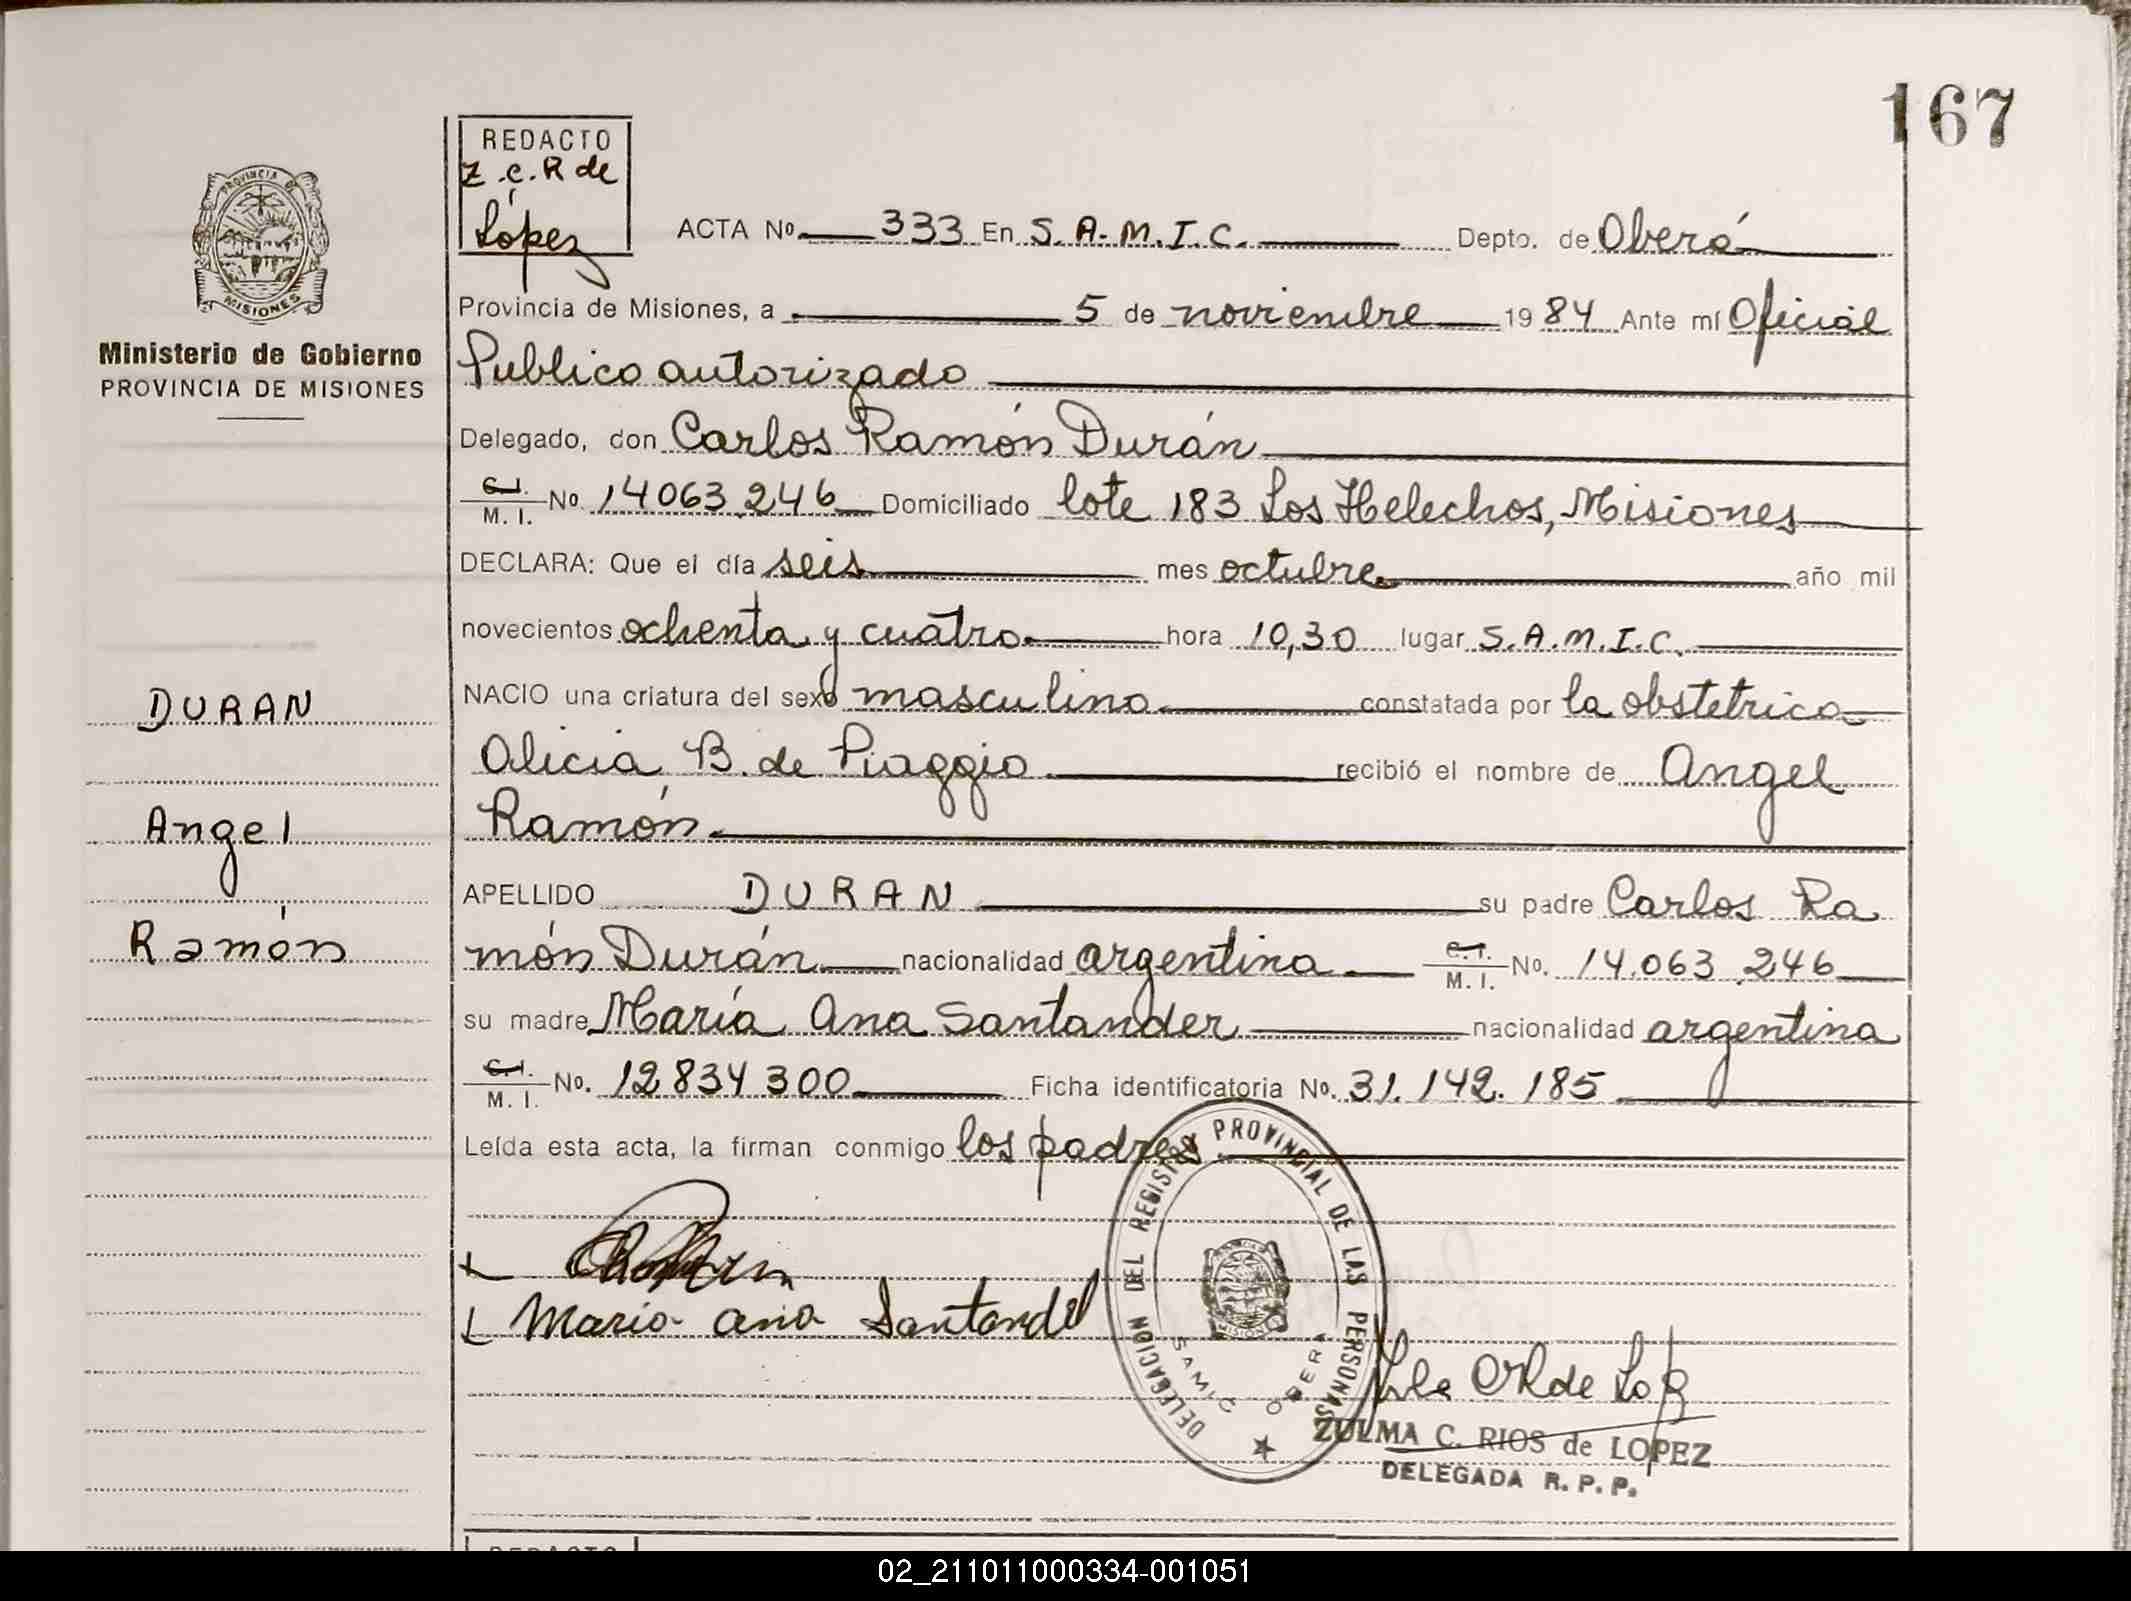 167
REDACTO
Z.C.R de
López
ACTA Nº 333 En S.A.M.I.C. Depto. de Oberá
Provincia de Misiones, a 5 de noviembre 1984 Ante mí Oficial
Publico autorizado
Delegado, don Carlos Ramón Durán
C.I. M.I. Nº 14063.246 Domiciliado lote 183 Los Helechos, Misiones
DECLARA: Que el día seis mes octubre año mil
novecientos ochenta y cuatro hora 10,30 lugar S.A.M.I.C.
NACIO una criatura del sexo masculino constatada por la obstetrica
Alicia B. de Piaggio recibió el nombre de Angel
Ramón
APELLIDO DURAN su padre Carlos Ra
món Durán nacionalidad argentina C.I. M.I. No. 14.063.246
su madre María Ana Santander nacionalidad argentina
C.I. M.I. No. 12834300 Ficha identificatoria No. 31.142.185
Leída esta acta, la firman conmigo los padres
Maria ana Santander
PROVINCIA DE
MISIONES
Ministerio de Gobierno
PROVINCIA DE MISIONES
DURAN
Angel
Ramón
DELEGACION DEL REGISTRO PROVINCIAL DE LAS PERSONAS
SAMIC OBERA
MISIONES
ZULMA C. RIOS de LOPEZ
DELEGADA R. P. P.
REDACTO
02_211011000334-001051